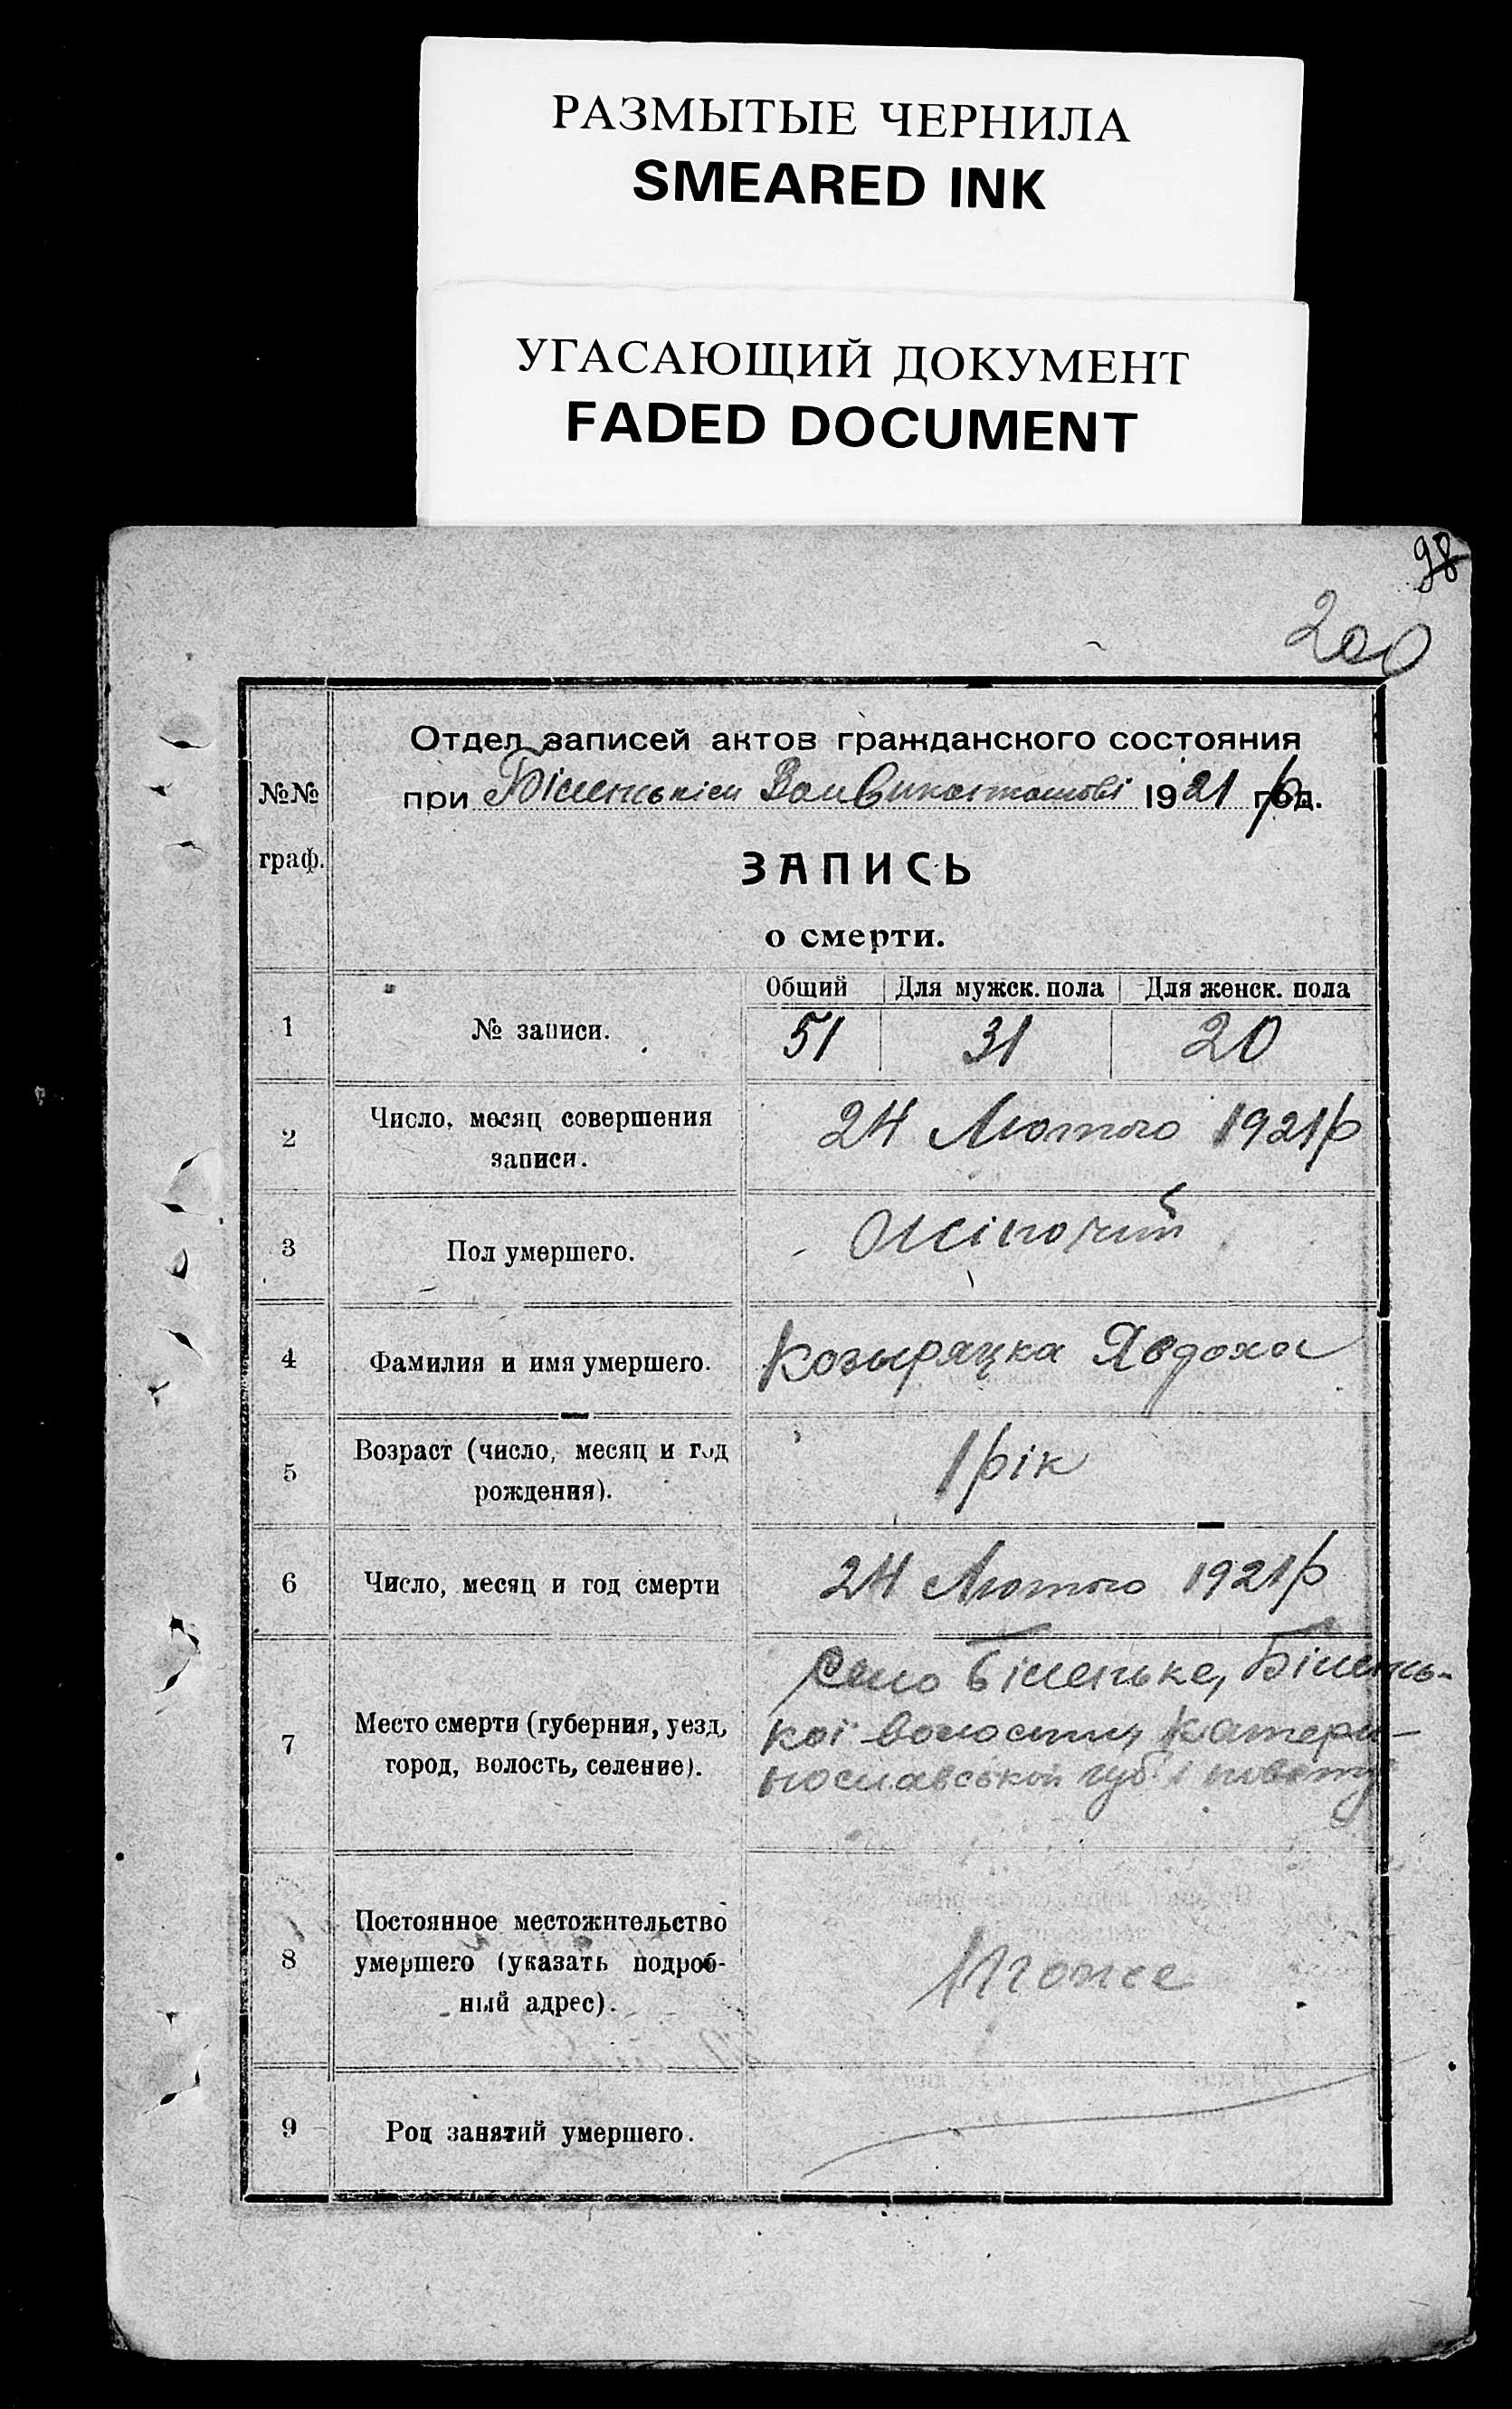 РАЗМЫТЫЕ ЧЕРНИЛА
SMEARED INK
УГАСАЮЩИЙ ДОКУМЕНТ
FADED DOCUMENT
98
200
Отдел записей актов гражданского состояния
№№ при Біленькім Волвиконкомові 1921 р год.
граф.
ЗАПИСЬ
о смерти.
Общий Для мужск. пола Для женск. пола
1 № записи. 51 31 20
2 Число, месяц совершения записи. 24 Лютого 1921 р
3 Пол умершего. Жіночий
4 Фамилия и имя умершего. Козыряцка Явдоха
5 Возраст (число, месяц и год рождения). 1 рік
6 Число, месяц и год смерти 24 Лютого 1921 р
7 Место смерти (губерния, уезд, город, волость, селение).
Село Біленьке, Білень-
кої волости, Катери-
нославської губ. і повіту
8 Постоянное местожительство
умершего (указать подроб-
ный адрес).
Тоже
9 Род занятий умершего.